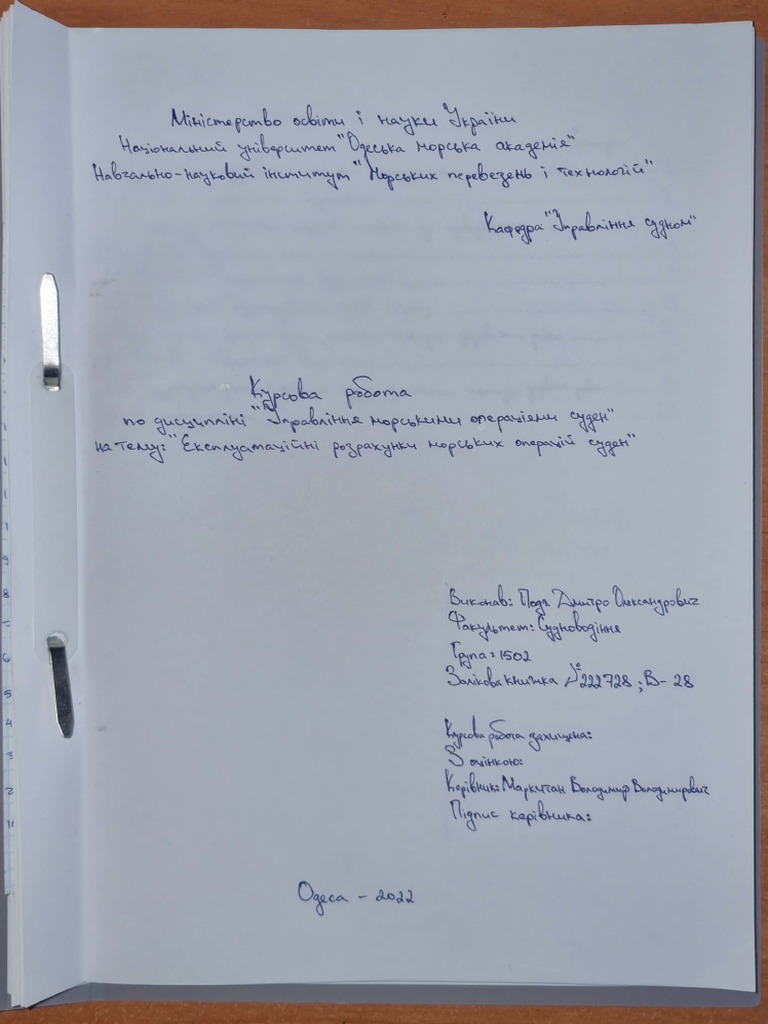 Міністерство освіти і науки України
Національний університет "Одеська морська академія"
Навчально-науковий інститут "Морських перевезень і технологій"
Кафедра "Управління судном"
Курсова робота
по дисципліні "Управління морськими операціями суден"
на тему: "Експлуатаційні розрахунки морських операцій суден"
Виконав: Подя Дмитро Олександрович
Факультет: Судноводіння
Група: 1502
Залікова книжка №222728; В-28
Курсова робота захищена:
З оцінкою:
Керівник: Маркитан Володимир Володимирович
Підпис керівника:
Одеса - 2022